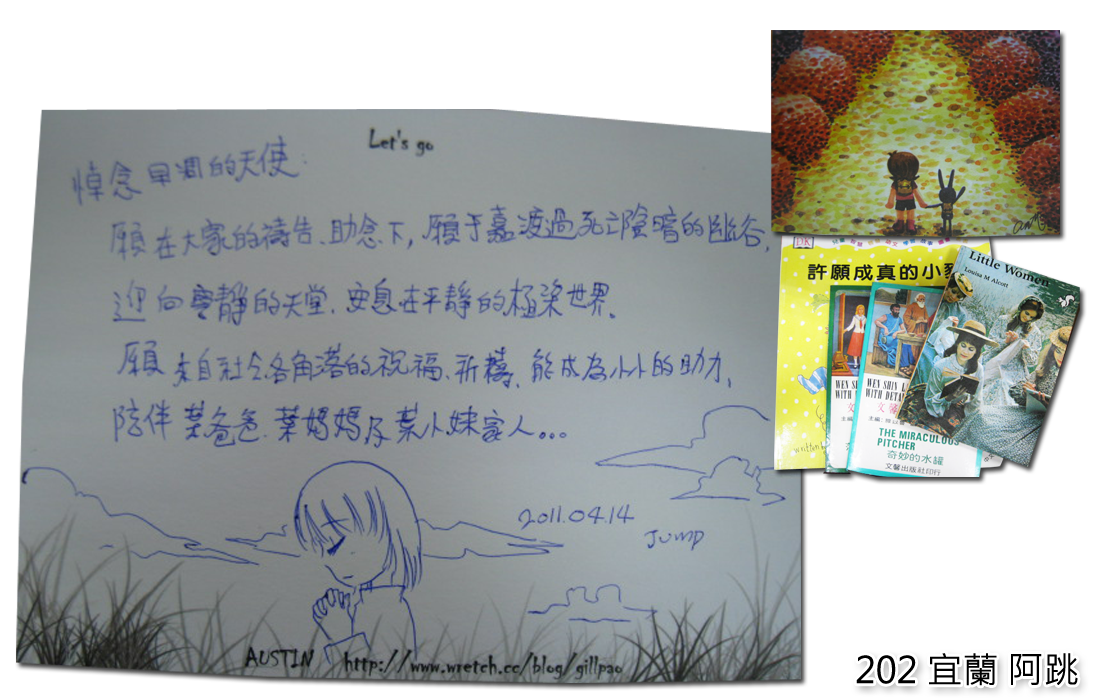 Let's go
悼念早凋的天使:
願在大家的禱告、助念下, 願于嘉渡過死亡陰暗的幽谷,
迎向寧靜的天堂、安息在平靜的極樂世界。
願來自社会各角落的祝福、祈禱、能成為小小的助力、
陪伴葉爸爸、葉媽媽及葉小妹家人...
2011.04.14
Jump
AUSTIN http://www.wretch.cc/blog/gillpao
DK
許願成真的小
Little Women
Louisa M Alcott
WEN SHIN
WITH
WEN SHIN L
WITH DETA
文
文馨
主編
主編
THE MIRACULOUS
PITCHER
奇妙的水罐
文馨出版社印行
written by
202 宜蘭 阿跳